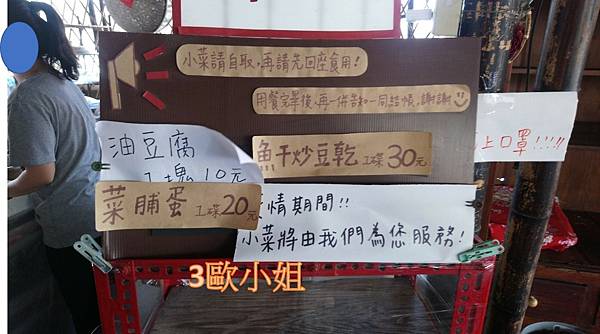 小菜請自取,再請先回座食用!
用餐完畢後,再一併告知一同結帳,謝謝
油豆腐
1塊10元
魚干炒豆乾 1碟30元
菜脯蛋 1碟20元
情期間!!
小菜將由我們為您服務!
上口罩!!!!
3歐小姐